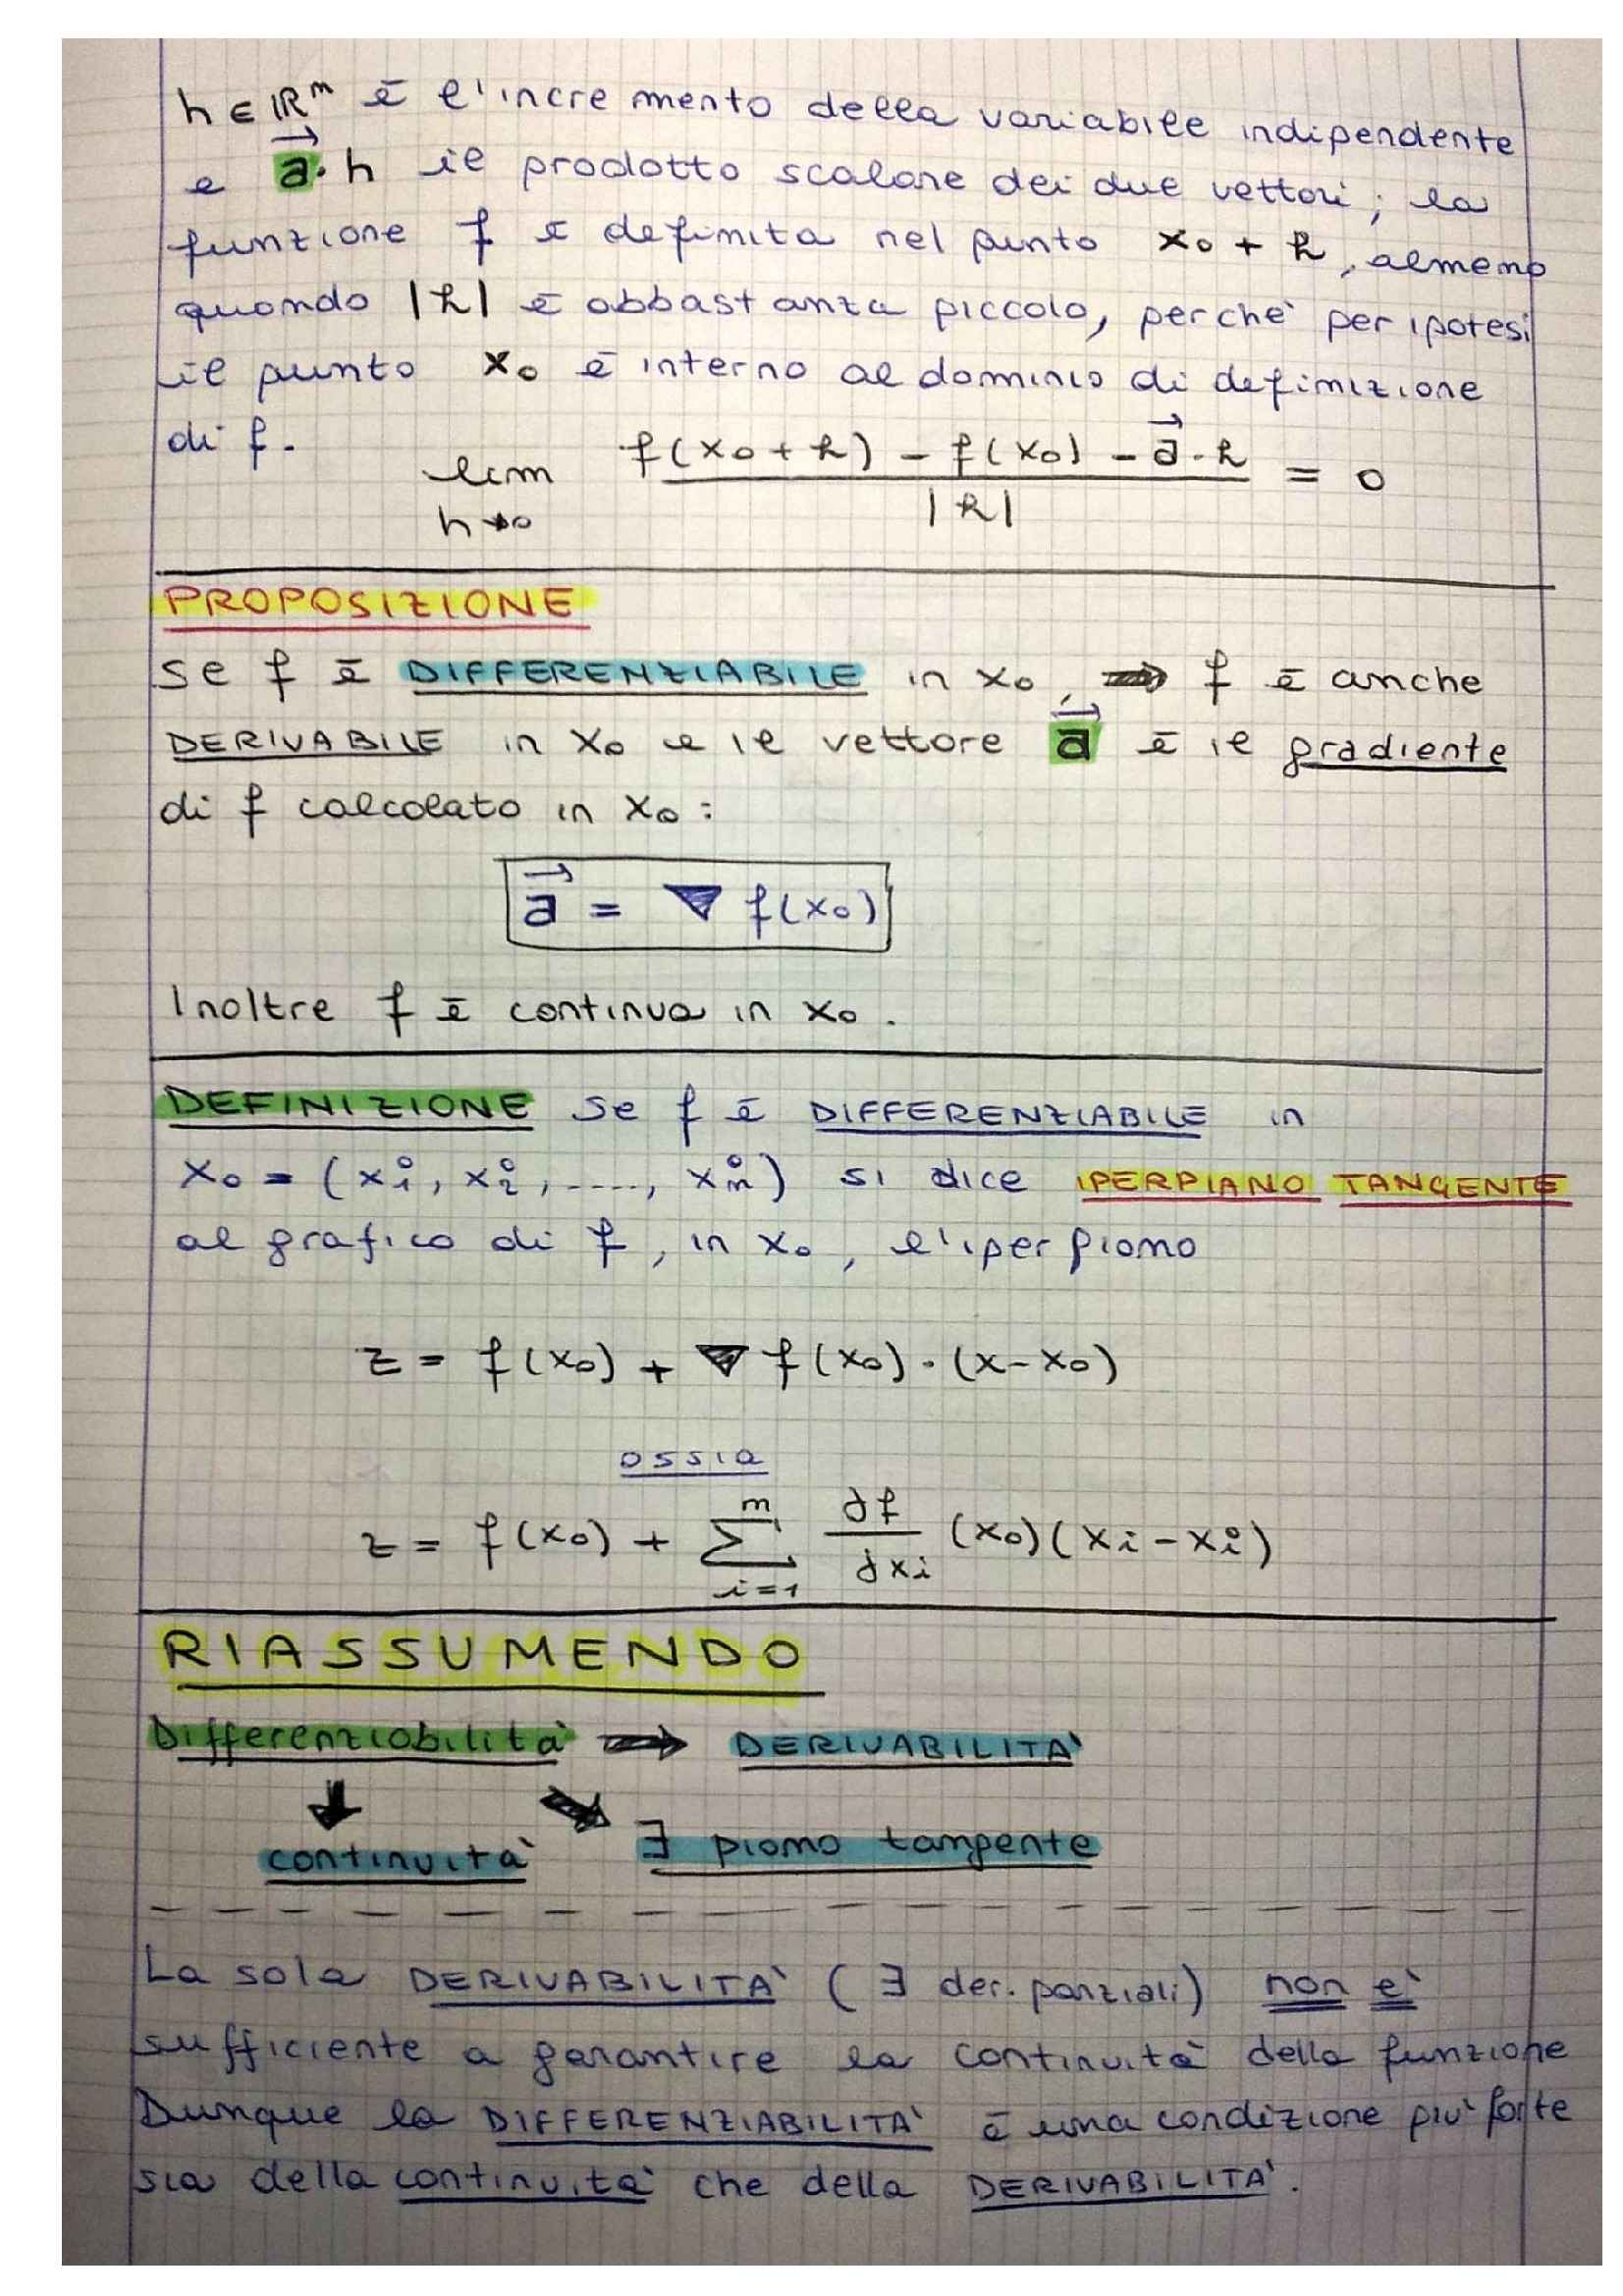 h ∈ ℝᵐ è l'incremento della variabile indipendente
e a⃗·h il prodotto scalare dei due vettori; la
funzione f è definita nel punto x₀ + h, almeno
quando |h| è abbastanza piccolo, perchè per ipotesi
il punto x₀ è interno al dominio di definizione
di f.
lim h→0 (f(x₀+h) - f(x₀) - a⃗·h) / |h| = 0
PROPOSIZIONE
Se f è DIFFERENZIABILE in x₀, ⇒ f è anche
DERIVABILE in x₀ e il vettore a⃗ è il gradiente
di f calcolato in x₀:
a⃗ = ∇ f(x₀)
Inoltre f è continua in x₀.
DEFINIZIONE Se f è DIFFERENZIABILE in
x₀ = (x₁⁰, x₂⁰, ...., xₘ⁰) si dice IPERPIANO TANGENTE
al grafico di f, in x₀, l'iperpiano
z = f(x₀) + ∇ f(x₀) · (x - x₀)
ossia
z = f(x₀) + ∑_{i=1}^{m} ∂f/∂xᵢ (x₀)(xᵢ - xᵢ⁰)
RIASSUMENDO
Differenziabilità ⇒ DERIVABILITA'
⇓ ⇘
continuità ∃ piano tangente
La sola DERIVABILITA' (∃ der. parziali) non è
sufficiente a garantire la continuità della funzione
Dunque la DIFFERENZIABILITA' è una condizione più forte
sia della continuità che della DERIVABILITA'.